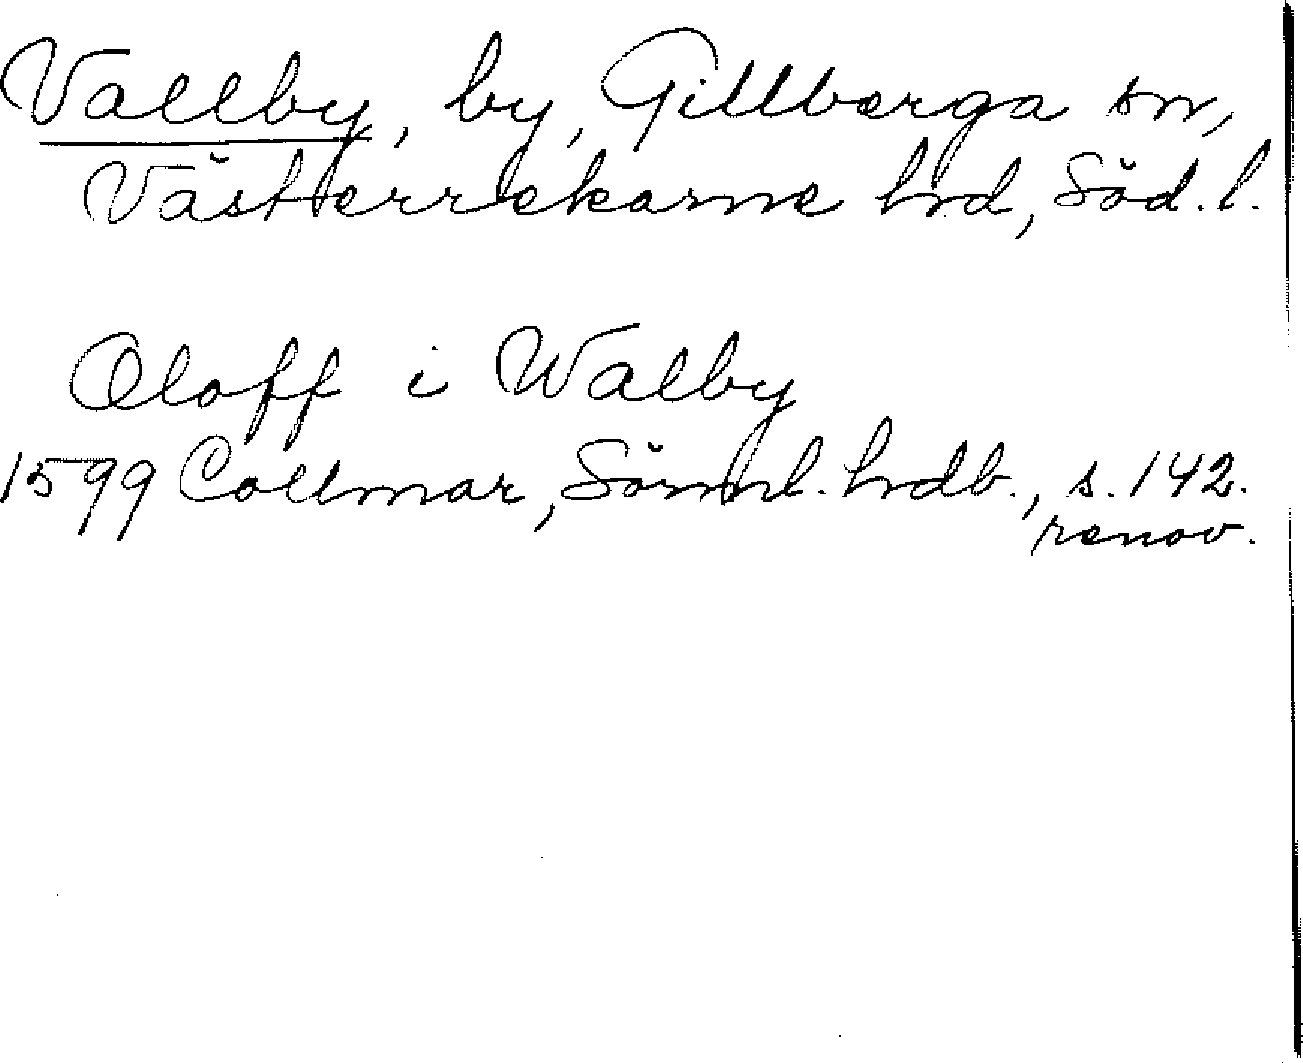 Vallby, by, Gillberga sn,
Västerrekarne hrd, Söd. l.
Oloff i Walby
1599 Collmar, Sörml. hrdb., s. 142.
renov.